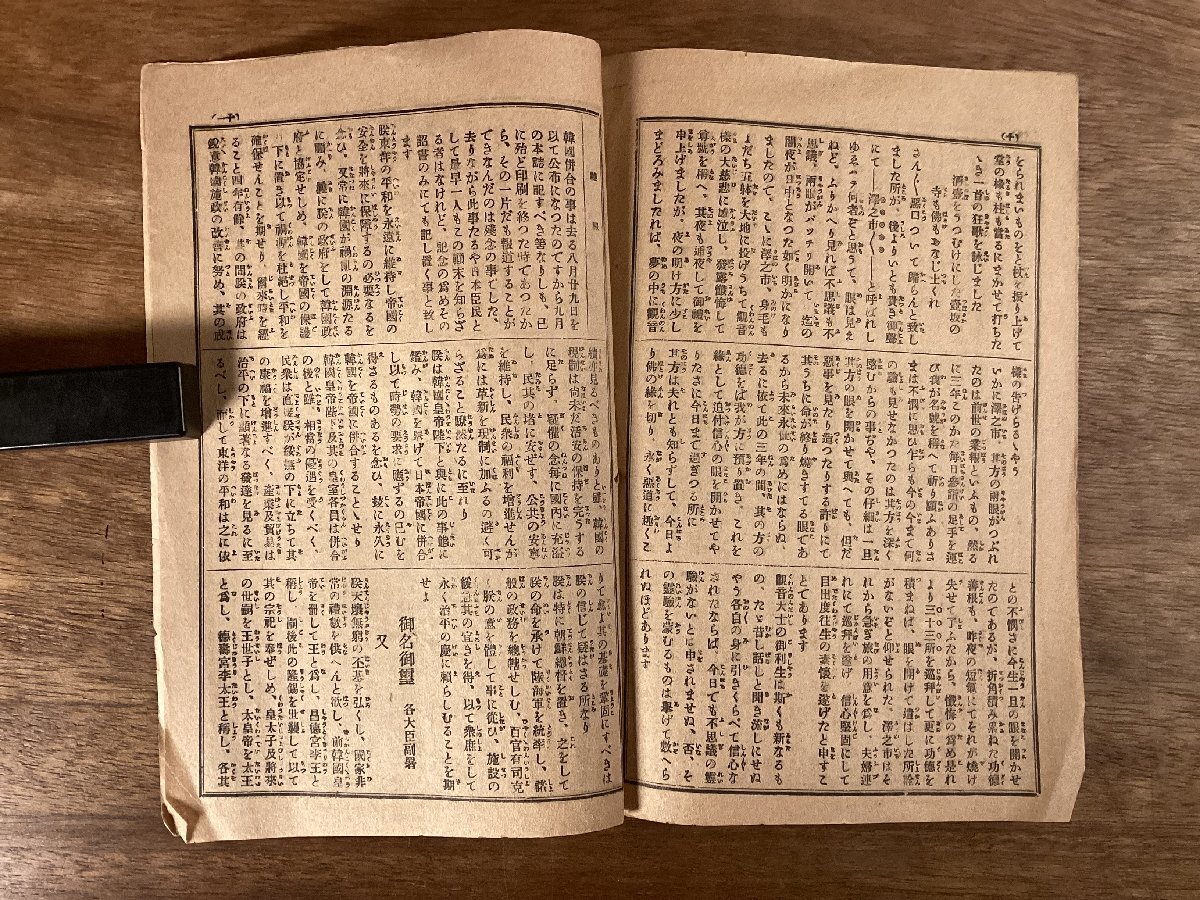 (十)
をられまいものをと杖を振り上げて
堂の縁も柱も當るにまかせて打ちた
ゝき一首の狂歌を詠じました
酒壺をうつむけにした壺坂の
寺も佛もみなじ上くれ
さんざん惡口ついて歸らんと致し
ました所が、後よりいとも貴き御聲
にて——澤之市〱——と呼ばれし
ゆゑハテ何者ぞと思うて、眼は見え
ねど、ふりかへり見れば不思議も不
思議、兩眼がパツチリ開いて、迄の
闇夜が日中となつた如く明かになり
ましたので、こゝに澤之市、身毛も
よだち五躰を大地に投げうちて觀音
樣の大慈悲に嬉泣し、發露懺悔して
尊號を稱へ、其夜も通夜して御禮を
申上げましたが、夜の明け方に少し
まどろみましたれば、夢の中に觀音
樣の告げらるゝやう
いかに澤之市、其方の兩眼がつぶれ
たのは前世の業報といふもの、然る
に三年このかた毎日參詣の足手を運
び我が名號を稱へて祈り願ふありさ
まは不憫に思ひ乍らも今の今まで何
の驗も見せなかつたのは其方を深く
感むからの事ぢや、その仔細は一旦
其方の眼を開かせて與へても、但だ
惡事を見たり造つたりする許りにて
其うちに命が終り燒きすてる眼であ
るから未來永劫の爲めにはならぬ、
去るに依て此の三年の間、其の方の
功德を我が方に預り置き、これを
緣として迫付信心の眼を開かせてや
りたさに今日まで過ぎつる所に
其方は夫れとも知らずして、今日よ
り佛の緣を切り、永く惡道に趣くこ
との不憫さに今生一旦の眼を開かせ
たのであるが、折角積み重ねた功德
善根も、昨夜の短氣にてそれが燒け
失せて了ふたから、懺悔の爲め是れ
より三十三所を巡拜して更に功德を
積まねば、眼を開けて遣はした所詮
がないぞと仰せられた、澤之市はそ
れから急ぎ旅の用意を爲し、夫婦連
れにて巡拜を遂げ、信心堅固にして
目出度往生の素懷を遂げたと申すこ
とであります
觀音大士の御利生は斯くも新なるも
の、たゞ昔し話しと聞き濟しにせぬ
やう各自の身に引きくらべて信心な
されたならば、今日でも不思議の靈
驗がないとは申されませぬ、否、そ
の靈驗を蒙むるものは擧げて數へら
れぬほどあります
(十一)
韓國併合の事は去る八月廿九日を
以て公布になつたのですから九月
の本誌に記すべき筈なりしも、已
に殆ど印刷を終つた時であつたか
ら、その一片だも報道することが
できなんだのは遺念の事でした、
去りながら此事たるや日本臣民と
して最早一人もこの顛末を知らざ
る者はなけれど、記念の爲めその
詔書のみにても記し置く事と致し
ます
朕東洋の平和を永遠に維持し帝國の
安全を將來に保障するの必要なるを
念ひ、又常に韓國が禍亂の淵源たる
に顧み、曩に朕の政府をして韓國政
府と協定せしめ、韓國を帝國の保護
の下に置き以て禍源を杜絕し平和を
確保せんことを期せり、爾來時を經
ること四年有餘、其の間朕の政府は
銳意韓國施政の改善に努め、其の成
績亦見るべきものありと雖、韓國の
現制は尚未だ治安の保持を完うする
に足らず、疑懼の念毎に國內に充溢
し、民其の堵に安ぜず、公共の安寧
を維持し、民衆の福利を增進せんが
爲には革新を現制に加ふるの避く可
らざること瞭然たるに至れり
朕は韓國皇帝陛下と與に此の事態に
鑑み、韓國を擧げて日本帝國に併合
し以て時勢の要求に應ずるの已むを
得ざるものあるを念ひ、玆に永久に
韓國を帝國に併合することゝせり
韓國皇帝陛下及其の皇室各員は併合
の後と雖、相當の優遇を受くべく、
民衆は直接朕が綏撫の下に立ちて其
の康福を增進すべく、產業及貿易は
治平の下に顯著なる發達を見るに至
るべし、而して東洋の平和は之に依
りて愈よ其の基礎を鞏固にすべきは
朕の信じて疑はざる所なり
朕は特に朝鮮總督を置き、之をして
朕の命を承けて陸海軍を統率し、諸
般の政務を總轄せしむ、百官有司克
く朕の意を體して事に從ひ、施設の
緩急其の宜きを得、以て衆庶をして
永く治平の慶に賴らしむることを期
せよ
御名御璽
各大臣副署
又
朕天壤無窮の丕基を弘くし、國家非
常の禮數を供へんと欲し、前韓國皇
帝を冊して王と爲し、昌德宮李王と
稱し、嗣後此の隆錫を世襲して以て
其の宗祀を奉ぜしめ、皇太子及將來
の世嗣を王世子とし、太皇帝を太王
と爲し、德壽宮李太王と稱し、各其